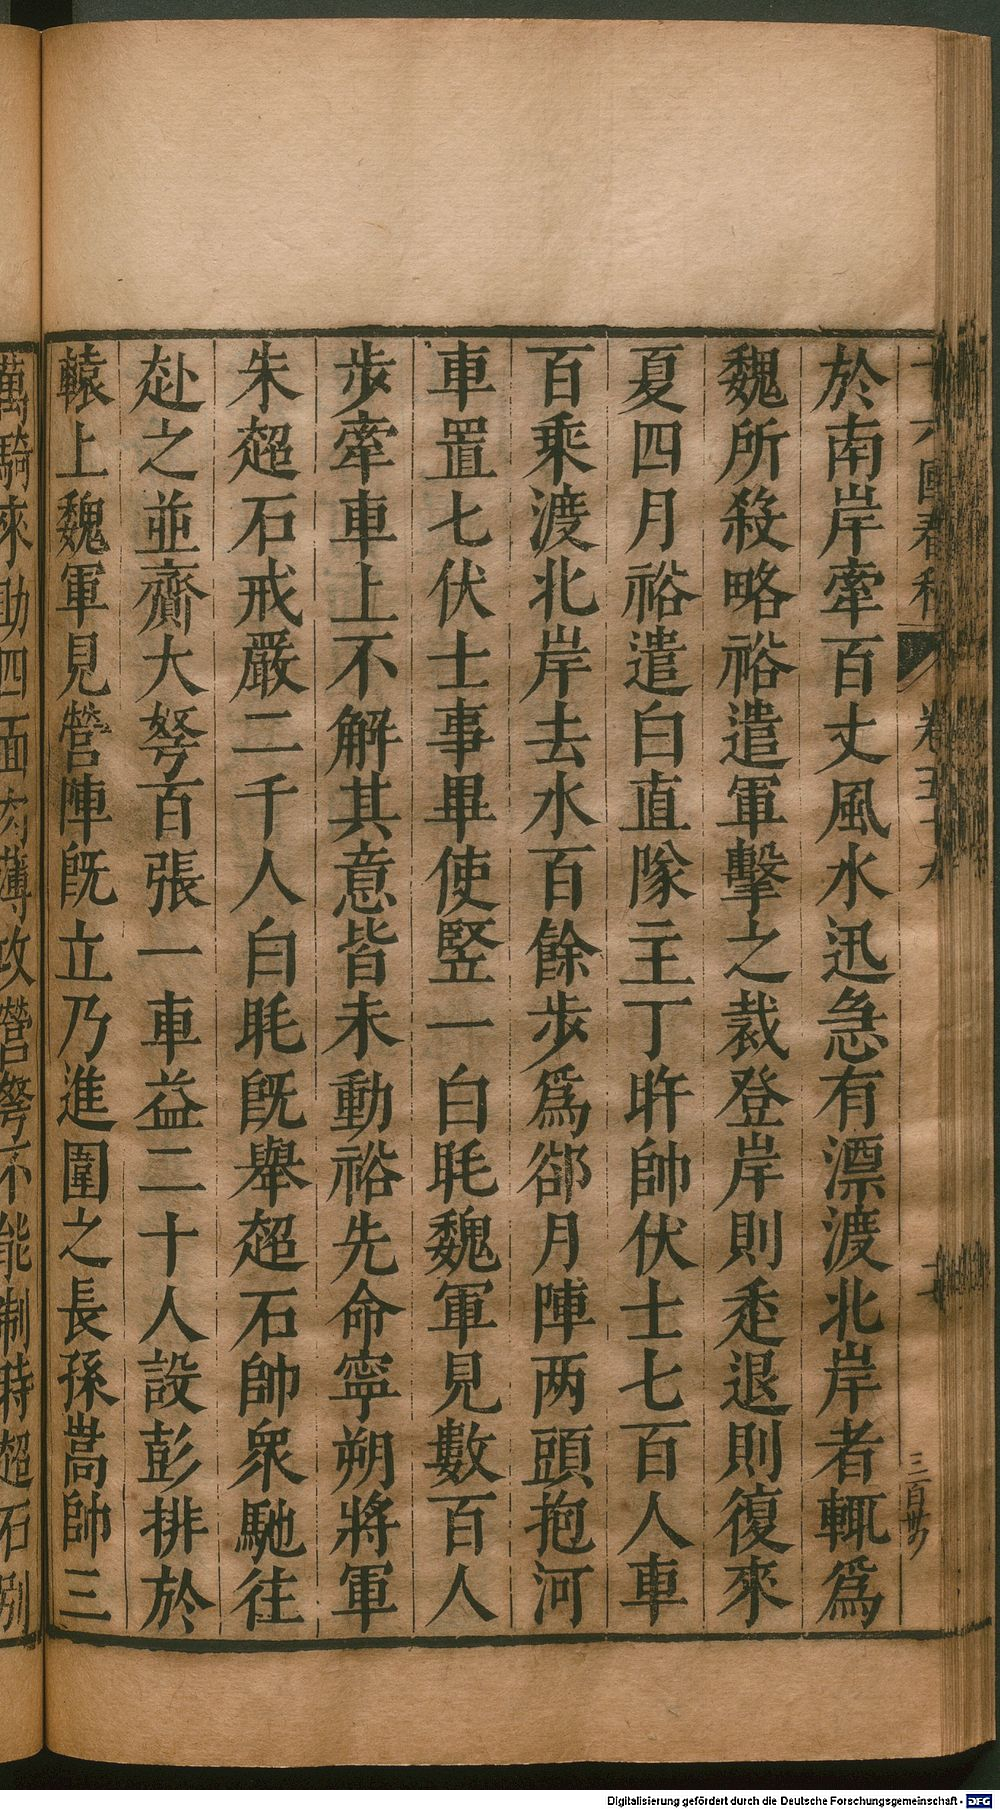 十六國春秋 卷五十九
三百廿
於南岸牽百丈風水迅急有漂渡北岸者輒爲
魏所殺略裕遣軍擊之裁登岸則走退則復來
夏四月裕遣白直隊主丁旿帥仗士七百人車
百乘渡北岸去水百餘步爲郤月陣两頭抱河
車置七仗士事畢使竪一白毦魏軍見數百人
步牽車上不解其意皆未動裕先命寧朔將軍
朱超石戒嚴二千人白毦旣舉超石帥衆馳往
赴之並齎大弩百張一車益二十人設彭排於
轅上魏軍見營陣旣立乃進圍之長孫嵩帥三
萬騎來助四面肉薄攻營弩不能制時超石別
Digitalisierung gefördert durch die Deutsche Forschungsgemeinschaft - DFG